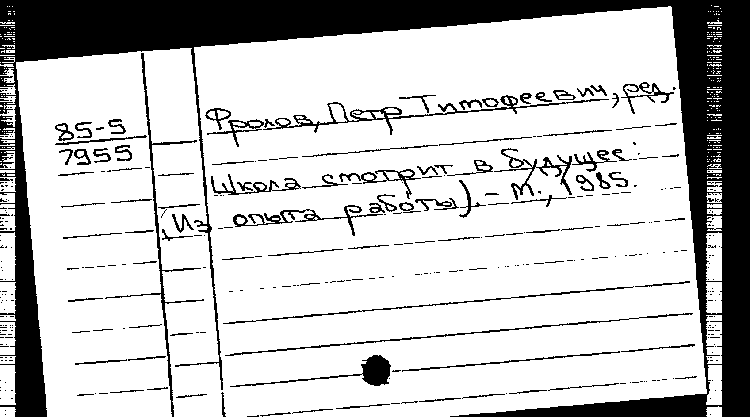 85-5
7955
Фролов, Петр Тимофеевич, ред.
Школа смотрит в будущее:
(Из опыта работы). - М., 1985.